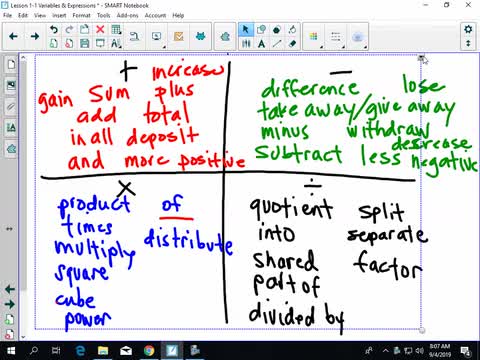 Lesson 1-1 Variables & Expressions * - SMART Notebook
File Edit View Insert Format Tools Add-ons Help
+ increase
gain sum plus
add total
in all deposit
and more positive
−
difference lose
take away/give away
minus withdraw
decrease
subtract less negative
×
product of
times
multiply distribute
square
cube
power
÷
quotient split
into separate
shared factor
part of
divided by
8:07 AM
9/4/2019